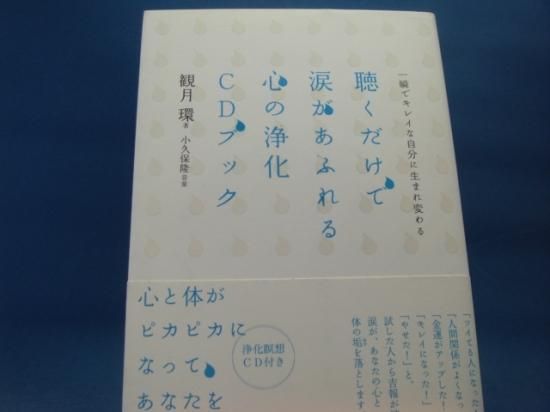 一瞬でキレイな自分に生まれ変わる
聴くだけで
涙があふれる
心の浄化
CDブック
観月 環 著
小久保隆 音楽
心と体が
ピカピカに
なって、
あなたを
浄化瞑想
CD付き
「ツイてる人になった
「人間関係がよくなっ
「金運がアップした!
「キレイになった!」
「やせた!」と、
試した人から吉報が
涙が、あなたの心と
体の垢を落とします